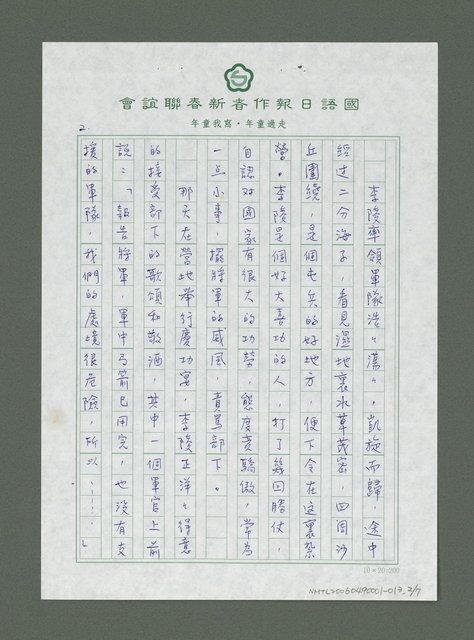 國語日報作者新春聯誼會
走過童年・寫我童年
2.
李陵率領軍隊浩々蕩々，凱旋而歸，途中
經过二分海子，看見濕地裏水草茂密，四周沙
丘圍繞，是個屯兵的好地方，便下令在这裏紮
營。李陵是個好大喜功的人，打了幾回勝仗，
自認对國家有很大的功勞，態度賁驕傲，常為
一点小事，擺將軍的威風，責罵部下。
那天在營地举行慶功宴，李陵正洋々得意
的接受部下的歌頌和敬酒，其中一個軍官上前
說：「報告將軍，軍中弓箭已用完，也没有支
援的軍隊，我們的處境很危險，所以……。」
10×20=200
NMTL20060490001-013_2/7